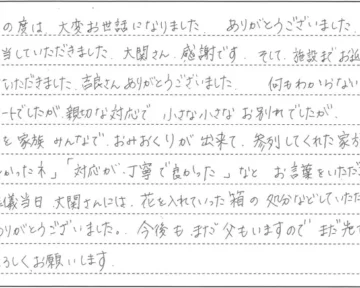 の度は、大変お世話になりました。 ありがとうございました。
当していただきました、大関さん、感謝です。そして、施設までお迎
いただきました、吉良さんありがとうございました。 何もわからない
ートでしたが、親切な対応で 小さな小さな お別れでしたが、
と家族 みんなで、おみおくりが 出来て、参列してくれた家
かったネ」「対応が、丁寧で良かった」など お言葉をいただ
儀当日 大関さんには、花を入れていった箱の処分などしていただ
りがとうございました。今後も、まだ父もいますので まだ先で
ろしくお願いします。